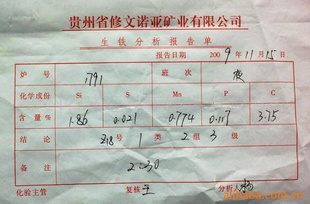 贵州省修文诺亚矿业有限公司
生铁分析报告单
报告日期 2009年11月15日
炉号 1791 班次 夜
化学成份 Si S Mn P C
含量% 1.86 0.021 0.774 0.117 3.75
结论 Z18号 1类 2组 3级
备注 2:30
化验主管 复核 王 分析 杨